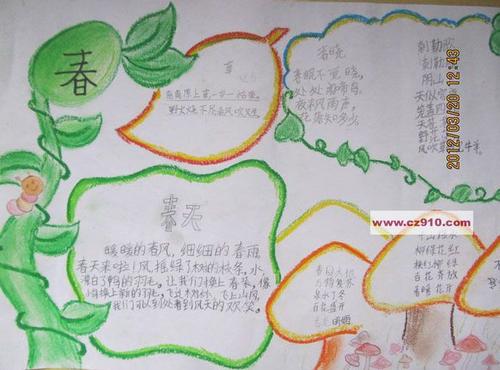 春
草
离离原上草一岁一枯荣
野火烧不尽春风吹又生
春晓
春眠不觉晓,
处处闻啼鸟。
夜来风雨声,
花落知多少
敕勒歌
敕勒
阴山
天似穹
笼盖四
天苍
野茫
风吹草 牛羊
2012/03/20 12:43
www.cz910.com
春天
暖暖的春风,细细的春雨
春天来啦!风摇绿了树的枝条,水
漂白了鸭的羽毛。让我们换上春装,像
换上新的羽毛,飞过树林,飞上山冈,
我们可以到处看到风天的欢笑。
春回大地
万物复苏
冰水
柳绿花红
桃红柳绿
百花齐放
春暖花开